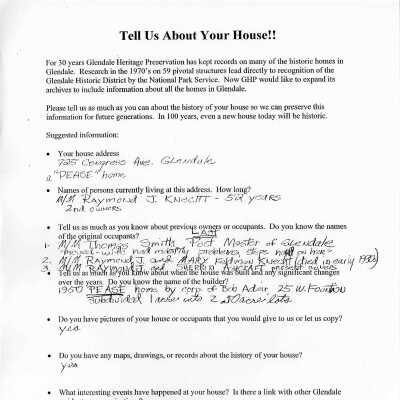 Tell Us About Your House!!
For 30 years Glendale Heritage Preservation has kept records on many of the historic homes in
Glendale. Research in the 1970's on 59 pivotal structures lead directly to recognition of the
Glendale Historic District by the National Park Service. Now GHP would like to expand its
archives to include information about all the homes in Glendale.
Please tell us as much as you can about the history of your house so we can preserve this
information for future generations. In 100 years, even a new house today will be historic.
Suggested information:
• Your house address
725 Congress Ave. Glendale
a "PEASE" home
• Names of persons currently living at this address. How long?
M/M Raymond J. Knecht - 52 years
2nd owners
• Tell us as much as you know about previous owners or occupants. Do you know the names
of the original occupants? LAST
1. M/M Thomas Smith, Post Master of Glendale
moved - wife had mobility problems, steps in home
2. M/M Raymond J. and MARY Knecht (died in early 1980s)
3. M/M Raymond J. and present owners
• Tell us as much as you know about when the house was built and any significant changes
over the years. Do you know the name of the builder?
1950 PEASE home by corp. of Bob Adair, 25 W. Fountain
subdivided 1 acre into 2
• Do you have pictures of your house or occupants that you would give to us or let us copy?
yes
• Do you have any maps, drawings, or records about the history of your house?
yes
• What interesting events have happened at your house? Is there a link with other Glendale